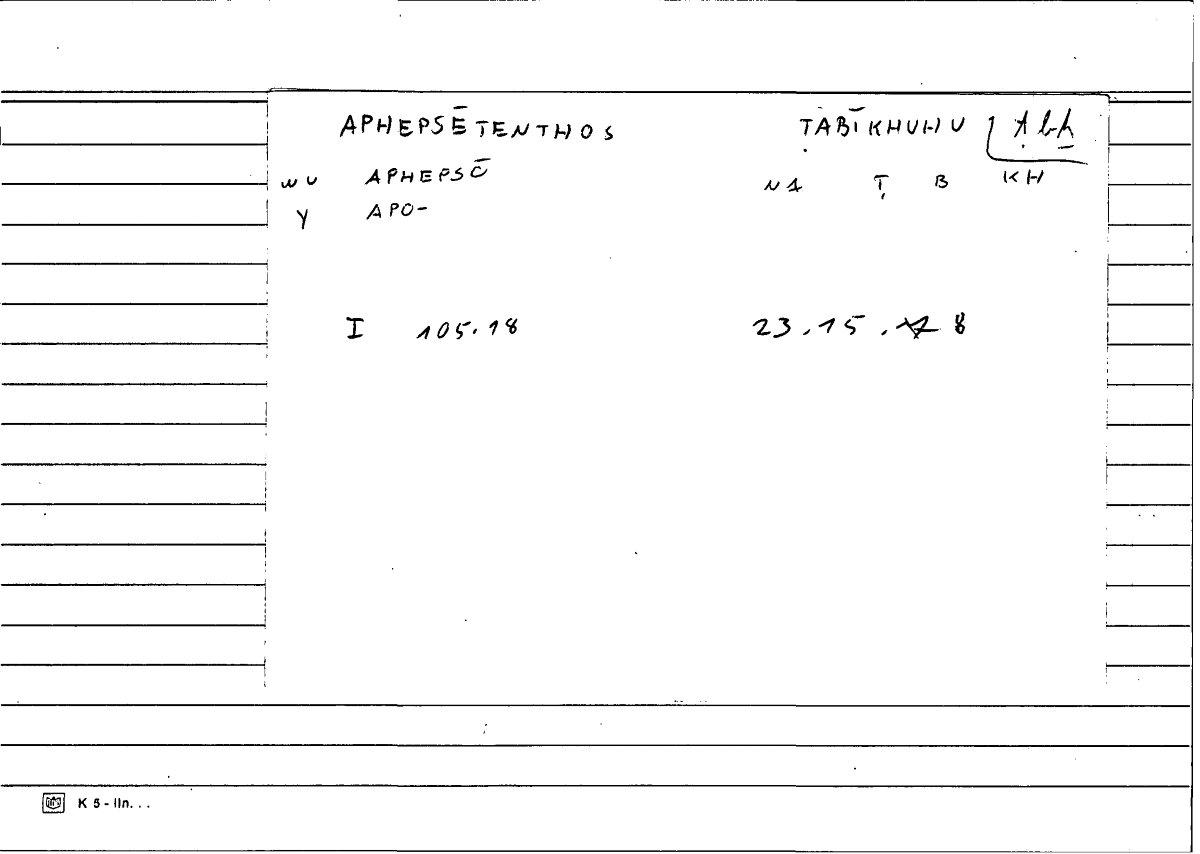 APHEPSĒTENTHOS ṬABĪKHUHU ṭbḫ
WU APHEPSŌ NA Ṭ B KH
Y APO-
I 105.18 23.15. 8
K 5 - lin...